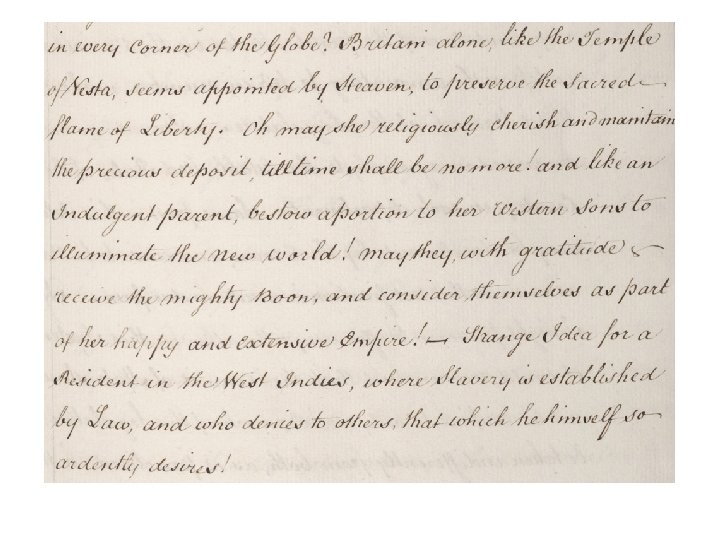 in every Corner of the Globe? Britain alone, like the Temple
of Vesta, seems appointed by Heaven, to preserve the Sacred
flame of Liberty. Oh may she religiously cherish and maintain
the precious deposit, till time shall be no more! and like an
Indulgent parent, bestow a portion to her Western Sons to
illuminate the new world! may they, with gratitude
receive the mighty Boon, and consider themselves as part
of her happy and Extensive Empire! — Strange Idea for a
Resident in the West Indies, where Slavery is established
by Law, and who denies to others, that which he himself so
ardently desires!